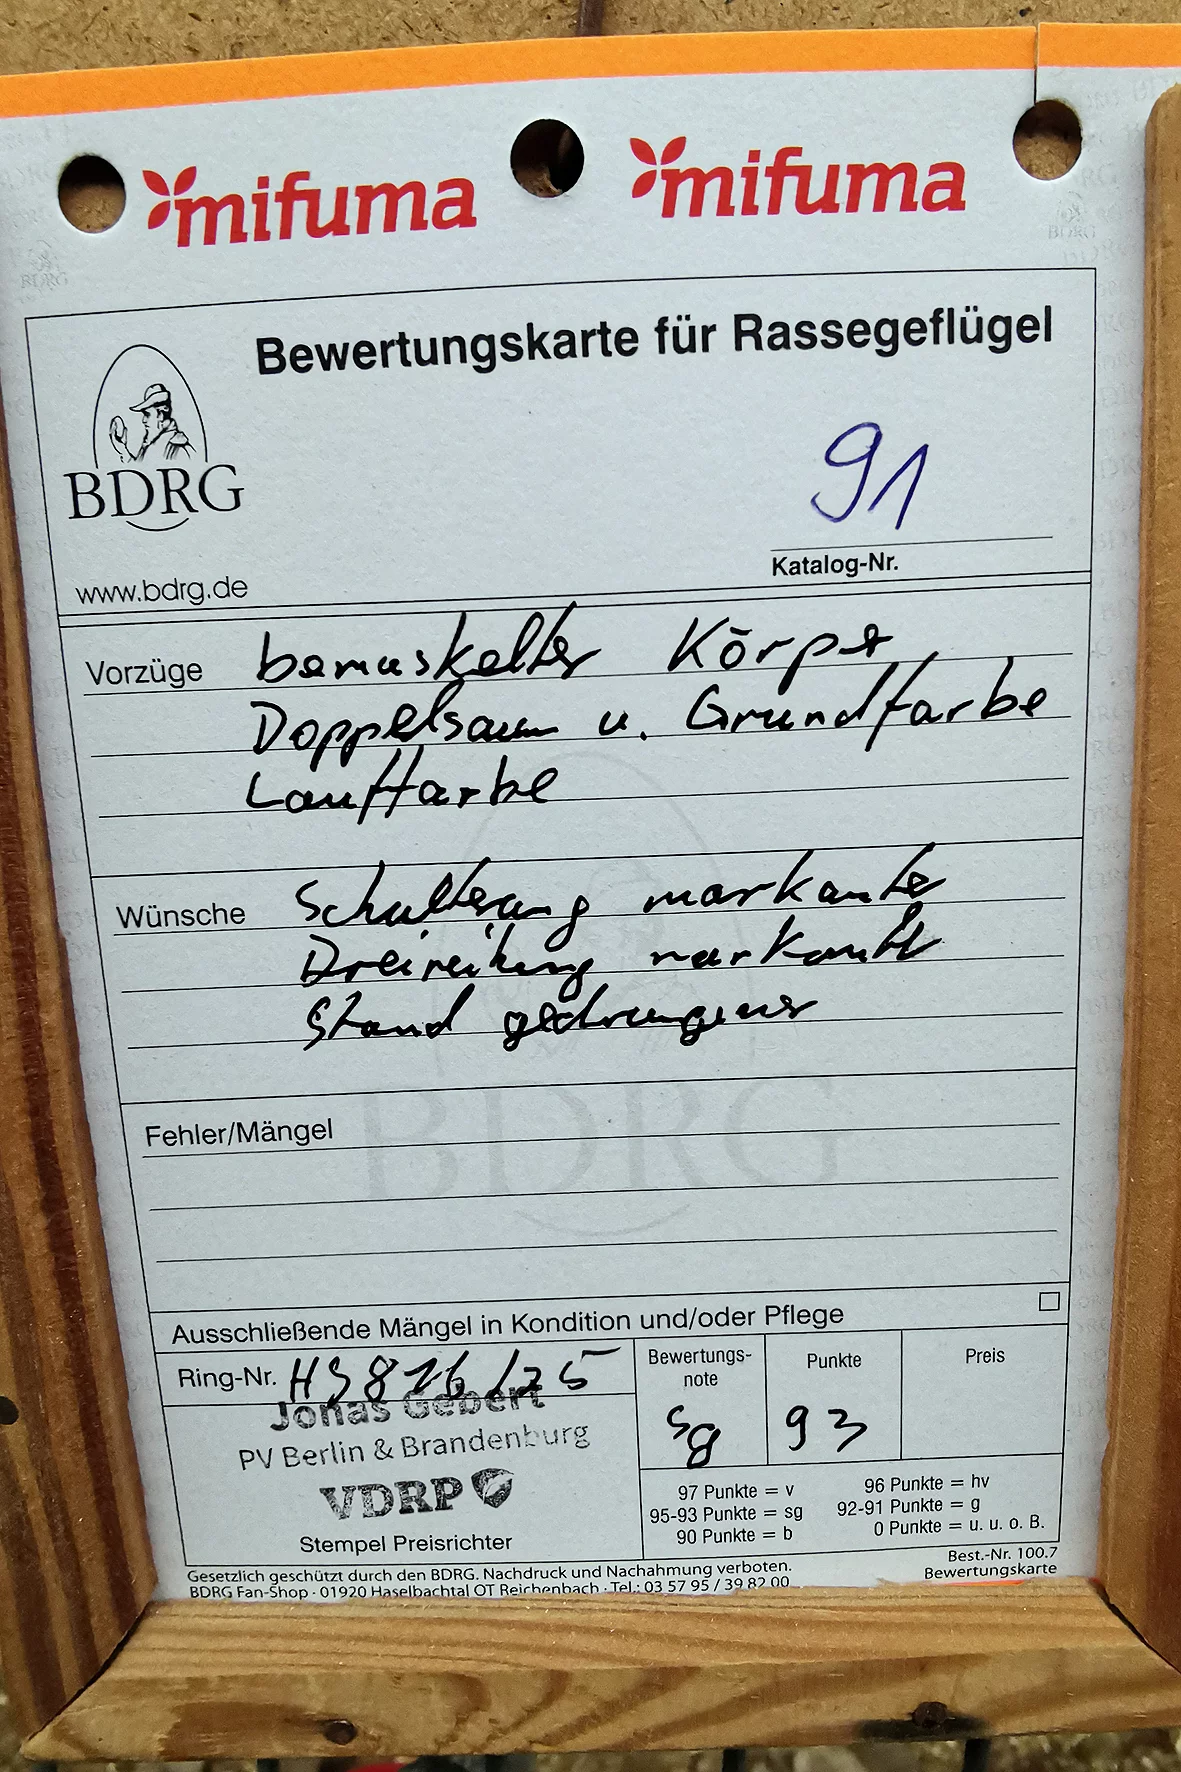 mifuma mifuma
Bewertungskarte für Rassegeflügel
BDRG
www.bdrg.de
91
Katalog-Nr.
Vorzüge bemuskelter Körper
Doppelsaum u. Grundfarbe
Lauffarbe
Wünsche Schulterung markanter
Dreireihung markanter
Stand gedrungener
Fehler/Mängel
BDRG
Ausschließende Mängel in Kondition und/oder Pflege
Ring-Nr. HS 826 /25
Jonas Gebert
PV Berlin & Brandenburg
VDRP
Stempel Preisrichter
Bewertungs-
note
sg
Punkte
93
Preis
97 Punkte = v 96 Punkte = hv
95-93 Punkte = sg 92-91 Punkte = g
90 Punkte = b 0 Punkte = u. u. o. B.
Gesetzlich geschützt durch den BDRG. Nachdruck und Nachahmung verboten.
BDRG Fan-Shop · 01920 Haselbachtal OT Reichenbach · Tel.: 03 57 95 / 39 82 00
Best.-Nr. 100.7
Bewertungskarte